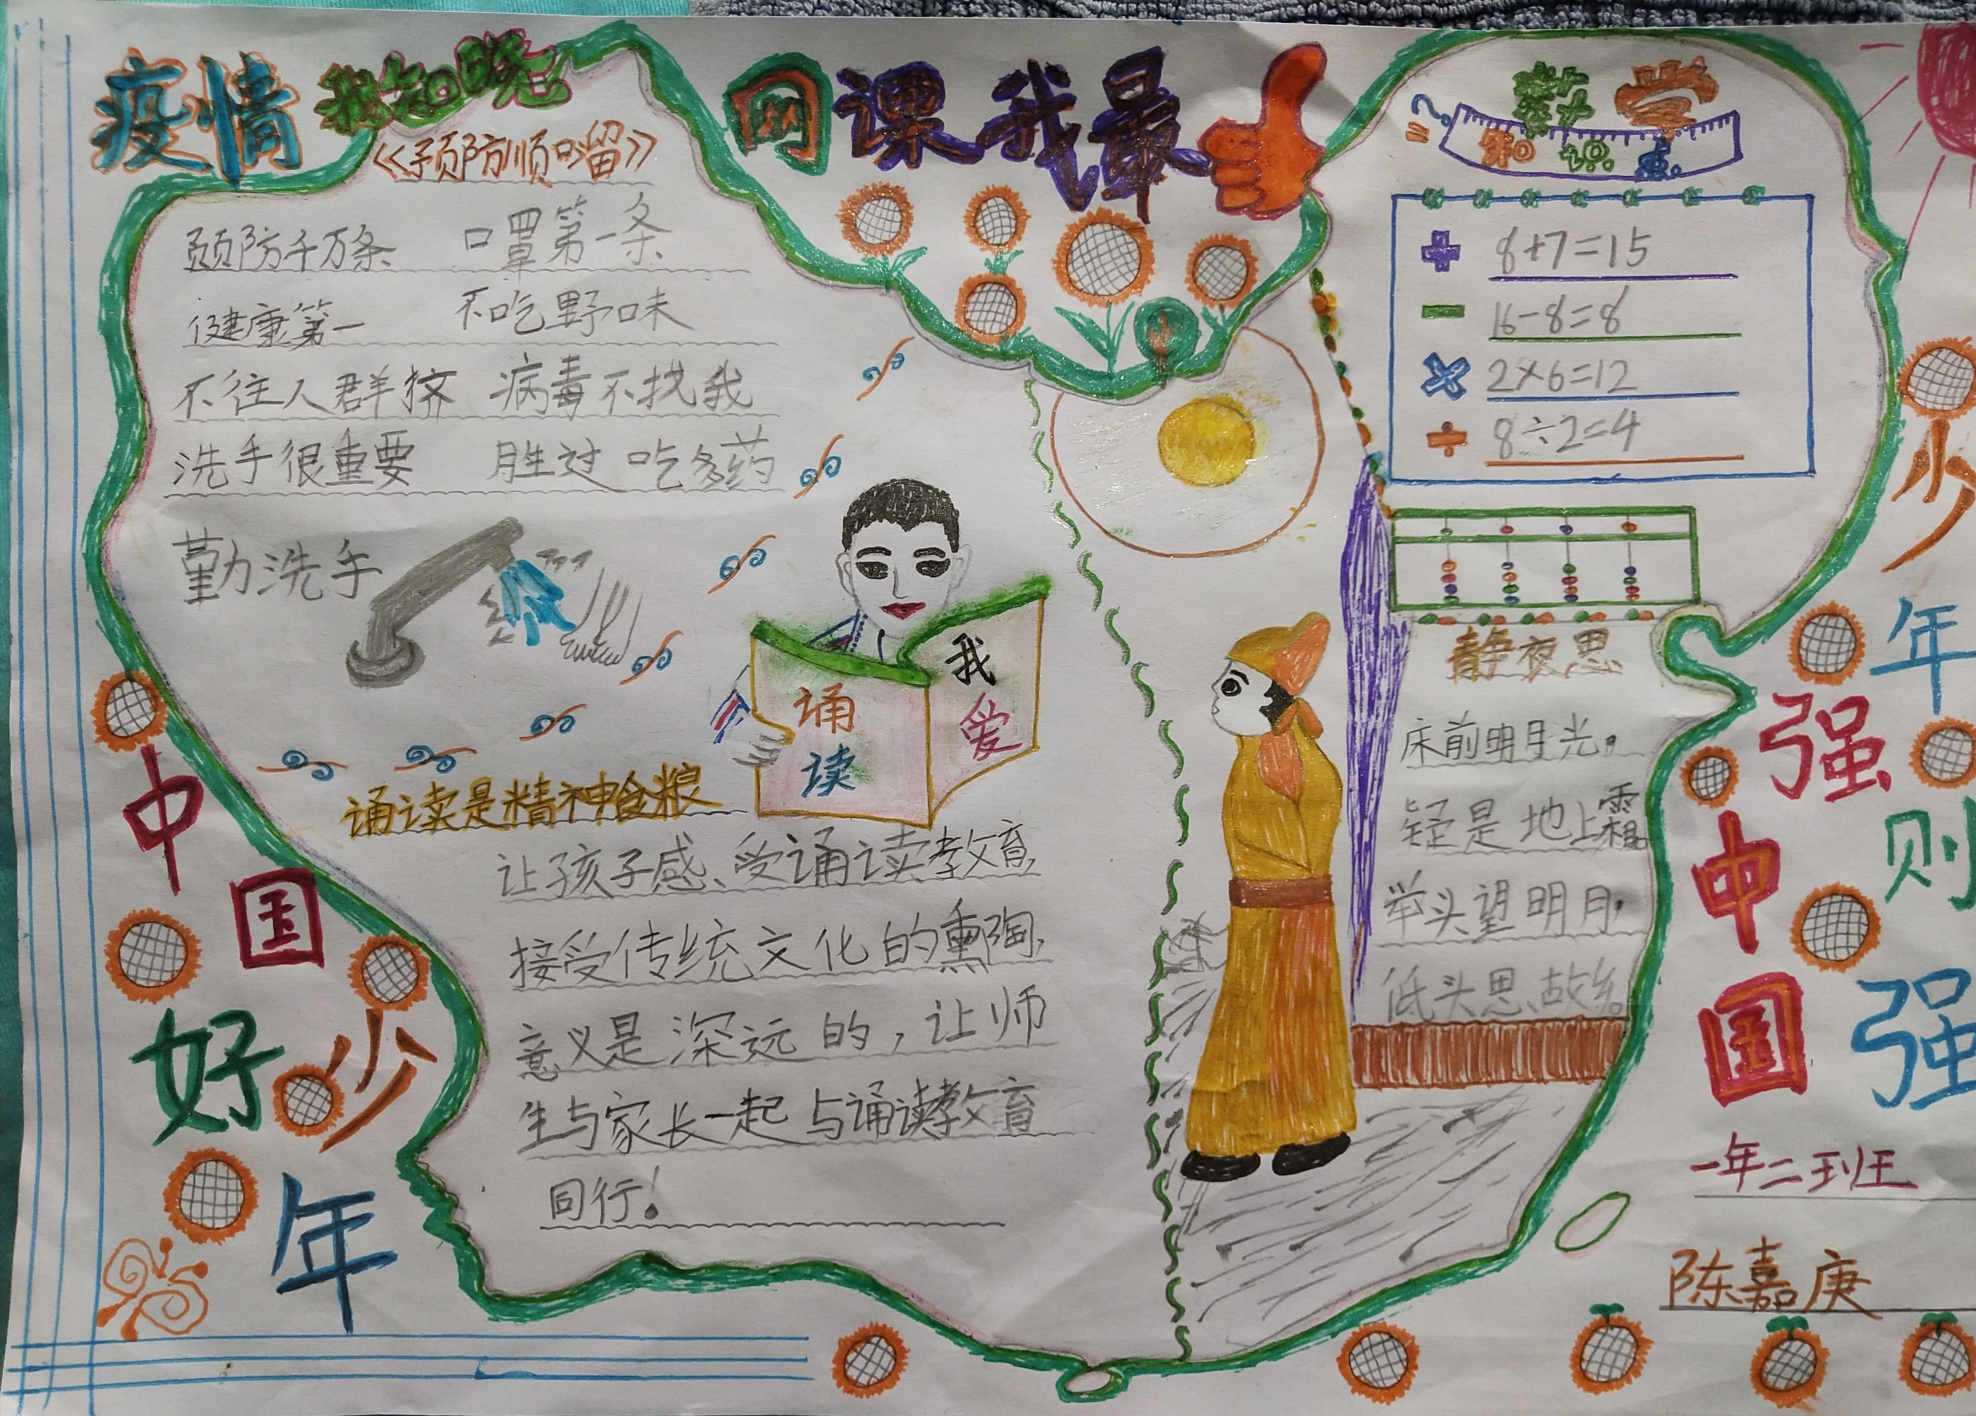 疫情我知晓
《预防顺口溜》
预防千万条 口罩第一条
健康第一 不吃野味
不往人群挤 病毒不找我
洗手很重要 胜过吃多药
勤洗手
网课我最
我爱
诵读
诵读是精神食粮
让孩子感、受诵读教育、
接受传统文化的熏陶,
意义是深远的,让师
生与家长一起与诵读教育
同行!
数学
知识点
8+7=15
16-8=8
2×6=12
8÷2=4
静夜思
床前明月光。
疑是地上霜。
举头望明月,
低头思故
中国好少年
少年强则
中国强
一年二班
陈嘉庚